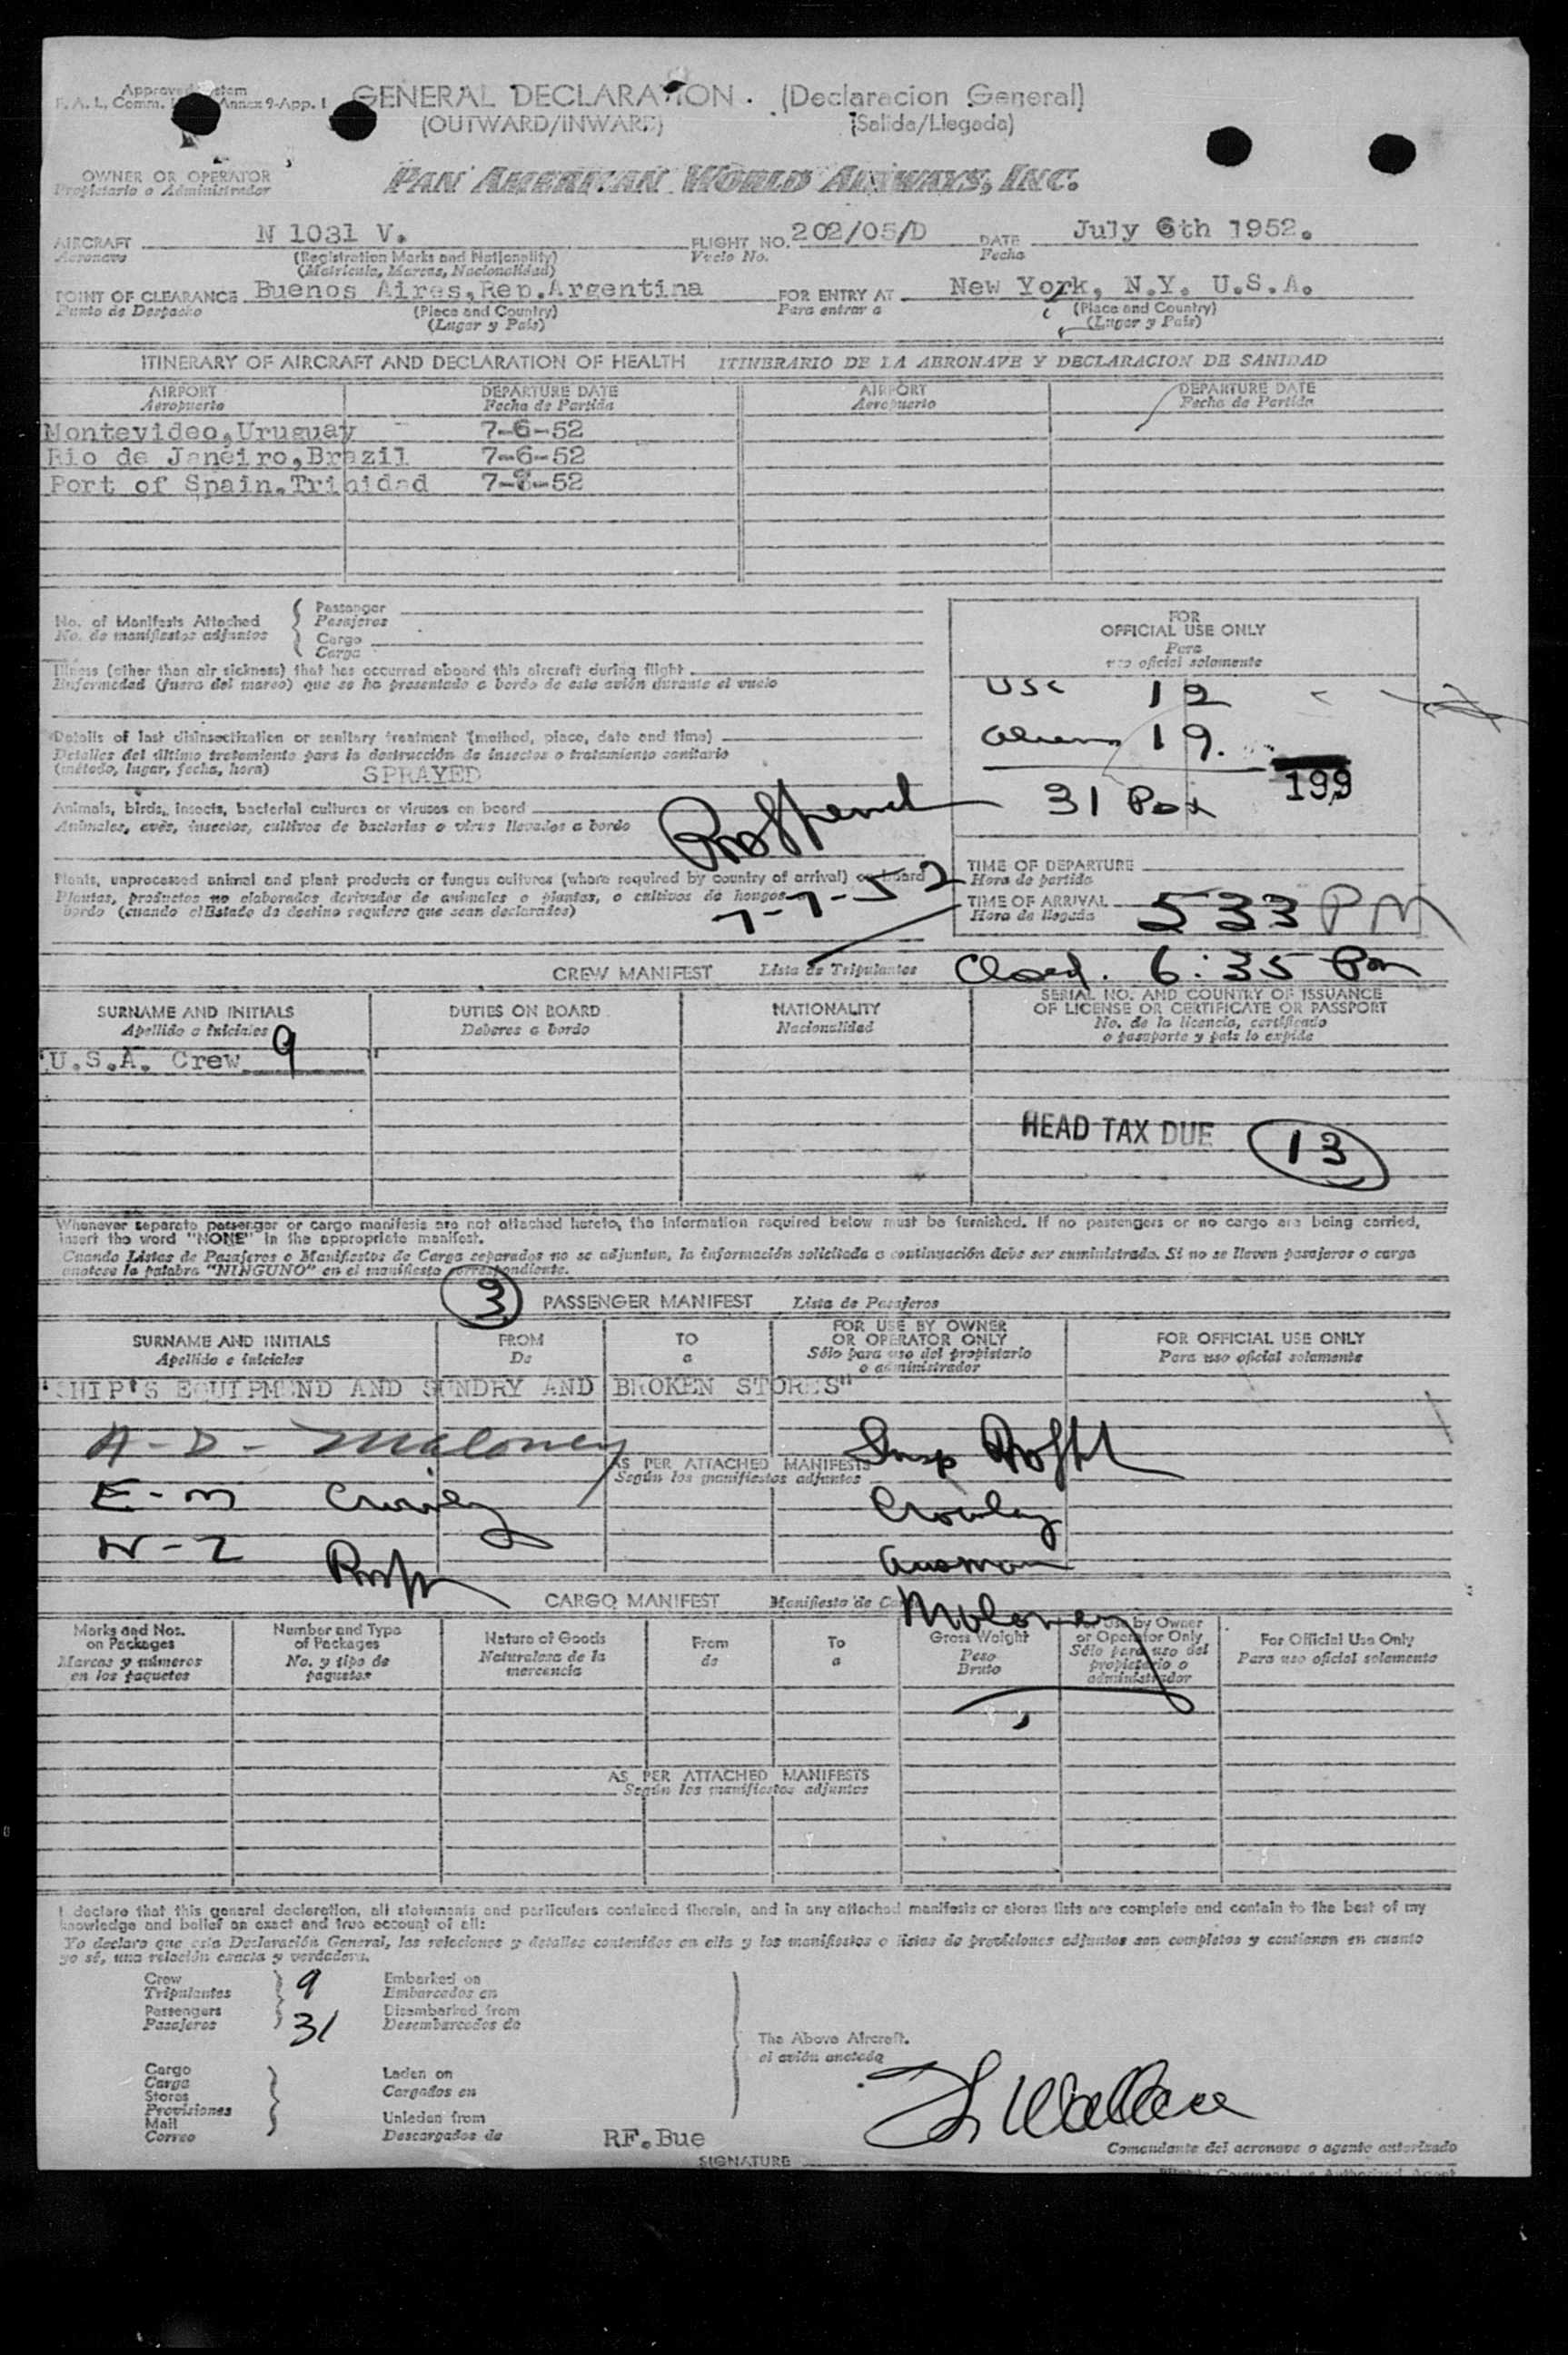 GENERAL DECLARATION. (Declaracion General)
F. A. L. Comm. Annex 9-App. 1
(OUTWARD/INWARD) (Salida/Llegada)
OWNER OR OPERATOR
Propietario o Administrador
PAN AMERICAN WORLD AIRWAYS, INC.
AIRCRAFT N 1031 V. FLIGHT NO. 202/05/D DATE July 6th 1952.
Aeronave (Registration Marks and Nationality) Vuelo No. Fecha
(Matricula, Marcas, Nacionalidad)
POINT OF CLEARANCE Buenos Aires,Rep.Argentina FOR ENTRY AT New York, N.Y. U.S.A.
Punto de Despacho (Place and Country) Para entrar a (Place and Country)
(Lugar y País) (Lugar y País)
ITINERARY OF AIRCRAFT AND DECLARATION OF HEALTH ITINERARIO DE LA AERONAVE Y DECLARACION DE SANIDAD
AIRPORT DEPARTURE DATE AIRPORT DEPARTURE DATE
Aeropuerto Fecha de Partida Aeropuerto Fecha de Partida
Montevideo,Uruguay 7-6-52
Rio de Janeiro,Brazil 7-6-52
Port of Spain.Trinidad 52
No. of Manifests Attached Passenger
No. de manifiestos adjuntos Pasajeros
Cargo
Carga
FOR
OFFICIAL USE ONLY
Para
uso oficial solamente
USC 12
19.
31 Pax 199
Illness (other than air sickness) that has occurred aboard this aircraft during flight
Enfermedad (fuera del mareo) que se ha presentado a bordo de este avión durante el vuelo
Details of last disinsectization or sanitary treatment (method, place, date and time)
Detalles del último tratamiento para la destrucción de insectos o tratamiento sanitario
(método, lugar, fecha, hora) SPRAYED
Animals, birds, insects, bacterial cultures or viruses on board
Animales, aves, insectos, cultivos de bacterias o virus llevados a bordo
Plants, unprocessed animal and plant products or fungus cultures (where required by country of arrival) on board
Plantas, productos no elaborados derivados de animales o plantas, o cultivos de hongos
bordo (cuando el Estado de destino requiere que sean declarados)
7-7-52
TIME OF DEPARTURE
Hora de partida
TIME OF ARRIVAL 533 PM
Hora de llegada
CREW MANIFEST Lista de Tripulantes Closed. 6:35 Pm
SURNAME AND INITIALS DUTIES ON BOARD NATIONALITY SERIAL NO. AND COUNTRY OF ISSUANCE
OF LICENSE OR CERTIFICATE OR PASSPORT
Apellido e iniciales Deberes a bordo Nacionalidad No. de la licencia, certificado
o pasaporte y país lo expide
U.S.A. Crew 9
HEAD TAX DUE 13
Whenever separate passenger or cargo manifests are not attached hereto, the information required below must be furnished. If no passengers or no cargo are being carried,
insert the word "NONE" in the appropriate manifest.
Cuando Listas de Pasajeros o Manifiestos de Carga separados no se adjuntan, la información solicitada a continuación debe ser suministrada. Si no se lleven pasajeros o carga
anotese la palabra "NINGUNO" en el manifiesto correspondiente.
3 PASSENGER MANIFEST Lista de Pasajeros
SURNAME AND INITIALS FROM TO FOR USE BY OWNER OR OPERATOR ONLY FOR OFFICIAL USE ONLY
Apellido e iniciales De a Sólo para uso del propietario o administrador Para uso oficial solamente
"SHIP'S EQUIPMEND AND SUNDRY AND BROKEN STORES"
A-D- Maloney Insp
AS PER ATTACHED MANIFESTS
Según los manifiestos adjuntos
E-M Crowley Crowley
Maloney
CARGO MANIFEST Manifiesto de Carga
Marks and Nos. on Packages Number and Type of Packages Nature of Goods From To Gross Weight For Use by Owner or Operator Only For Official Use Only
Marcas y números en los paquetes No. y tipo de paquetes Naturaleza de la mercancia de a Peso Bruto Sólo para uso del propietario o administrador Para uso oficial solamente
AS PER ATTACHED MANIFESTS
Según los manifiestos adjuntos
I declare that this general declaration, all statements and particulars contained therein, and in any attached manifests or stores lists are complete and contain to the best of my
knowledge and belief an exact and true account of all:
Yo declaro que esta Declaración General, las relaciones y detalles contenidos en ella y los manifiestos o listas de provisiones adjuntos son completos y contienen en cuanto
yo sé, una relación exacta y verdadera.
Crew 9 Embarked on
Tripulantes Embarcados en
Passengers 31 Disembarked from
Pasajeros Desembarcados de
The Above Aircraft.
el avión anotado
Cargo Laden on
Carga Cargados en
Stores
Provisiones
Mail Unladen from
Correo Descargados de
RF.Bue
Wallace
Comandante del aeronave o agente autorizado
SIGNATURE